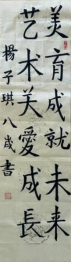 美育成就未来
艺术关爱成長
楊子琪八歲書